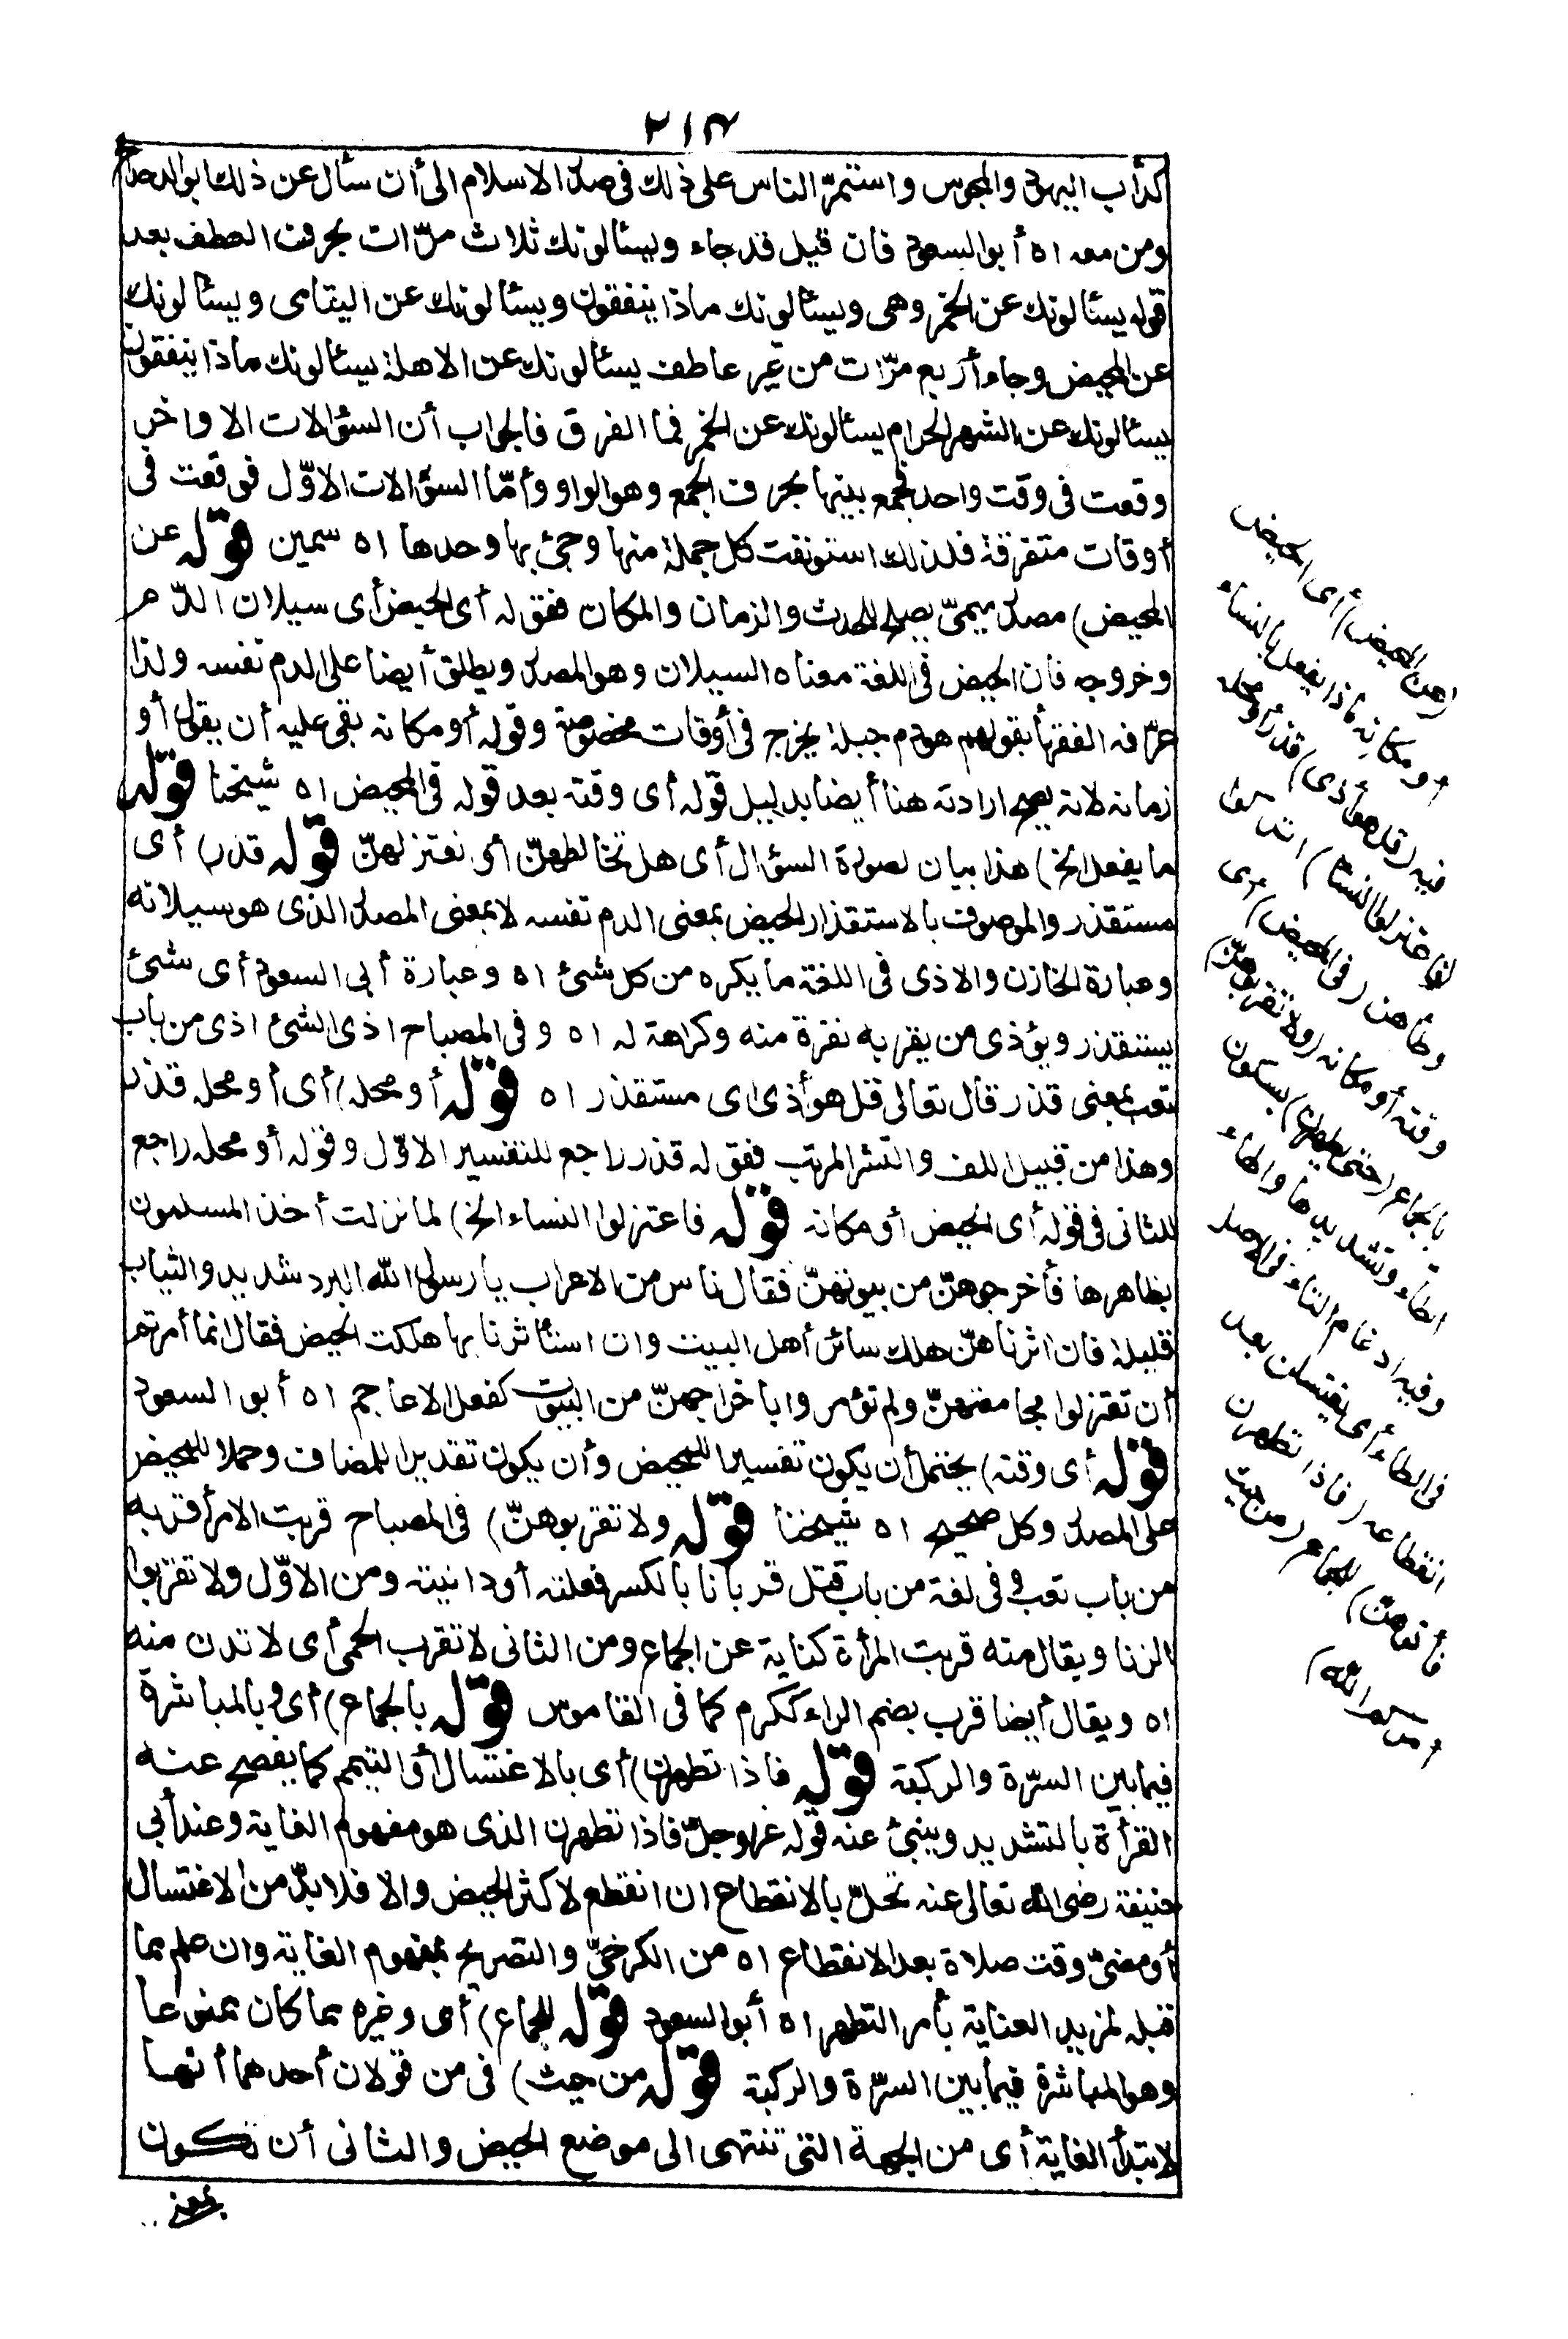 ٢١٣
كدأب اليهود والمجوس واستمرّ الناس على ذلك فى صدر الاسلام الى أن سأل عن ذلك ابوالدحداح
ومن معه اه أبوالسعود فان قيل قد جاء ويسئالونك ثلاث مرّات بحرف العطف بعد
قوله يسئالونك عن الخمر وهى ويسئالونك ماذا ينفقون ويسئالونك عن اليتامى ويسئالونك
عن المحيض وجاء أربع مرّات من غير عاطف يسئالونك عن الاهلة يسئالونك ماذا ينفقون
يسئالونك عن الشهر الحرام يسئالونك عن الخمر فما الفرق فالجواب أن السؤالات الاواخر
وقعت فى وقت واحد فجمع بينها بحرف الجمع وهوالواو وأمّا السؤالات الاوّل فوقعت فى
أوقات متفرقة فلذلك استونفت كل جملة منها وجئ بها وحدها اه سمين قوله عن
المحيض) مصدر ميمىّ يصلح للحدث والزمان والمكان فقوله أى الحيض أى سيلان الدّم
وخروجه فان الحيض فى اللغة معناه السيلان وهوالمصدر ويطلق أيضا على الدم نفسه ولذا
عرّفه الفقهأ بقولهم هودم جبلة يخرج فى أوقات مخصوصة وقوله أومكانه بقى عليه أن يقول أو
زمانه لانه يصح ارادته هنا أيضا بدليل قوله أى وقته بعد قوله فى المحيض اه شيخنا قوله
ما يفعل الخ) هذا بيان لصورة السؤال أى هل تخالطهنّ أو نعتزلهنّ قوله قذر) أى
مستقذر والموصوف بالاستقذار الحيض بمعنى الدم نفسه لا بمعنى المصدر الذى هو سيلانه
وعبارة الخازن والاذى فى اللغة ما يكره من كل شئ اه وعبارة أبى السعود أى شئ
يستقذر ويؤذى من يقربه نفرة منه وكراهة له اه وفى المصباح اذى الشئ اذى من باب
تعب بمعنى قذر قال تعالى قل هوأذى اى مستقذر اه قوله أومحله) أى أو محله قذر
وهذا من قبيل اللف والنشر المرتب فقوله قذر راجع للتفسير الاوّل وقوله أو محله راجع
للثانى فى قوله أى الحيض أومكانه قوله فاعتزلوا النساء الخ) لما نزلت أخذ المسلمون
بظاهرها فأخرجوهنّ من بيوتهنّ فقال ناس من الاعراب يا رسول الله البرد شديد والثياب
قليلة فان اثرناهنّ هلك سائر أهل البيت وان استاثرنا بها هلكت الحيض فقال انما أمرتم
أن تعتزلوا مجامعتهنّ ولم تؤمروا باخراجهنّ من البيوت كفعل الاعاجم اه أبو السعود
قوله أى وقته) يحتمل أن يكون تفسيرا للمحيض وأن يكون تقديرا للمضاف وحملا للمحيض
على المصدر وكل صحيح اه شيخنا قوله ولا تقربوهنّ) فى المصباح قربت الامر أقربه
من باب تعب وفى لغة من باب قتل قربانا بالكسر فعلته أو دانيته ومن الاوّل ولا تقربوا
الزنا ويقال منه قربت المرأة كناية عن الجماع ومن الثانى لا تقرب الحمى أى لا تدن منه
اه ويقال أيضا قرب بضم الراء ككرم كما فى القاموس قوله بالجماع) أى وبالمباشرة
فيمابين السرّة والركبة قوله فاذا تطهرن) أى بالاغتسال أو التيمم كما يفصح عنه
القرأة بالتشديد وينبئ عنه قوله عز وجلّ فاذا تطهرن الذى هو مفهوم الغاية وعند أبى
حنيفة رضى الله تعالى عنه تحلّ بالانقطاع ان انقطع لاكثر الحيض والا فلا بدّ من الاغتسال
أومضىّ وقت صلاة بعد الانقطاع اه من الكرخىّ والتصريح بمفهوم الغاية وان علم مما
قبله لمزيد العناية بأمر التطهر اه أبوالسعود قوله للجماع) أى وغيره مما كان ممنوعا
وهوالمباشرة فيمابين السرّة والركبة قوله من حيث) فى من قولان أحدهما أنها
لابتدأ الغاية أى من الجهة التى تنتهى الى موضع الحيض والثانى أن تكون
بمعنى
(عن المحيض) أى الحيض
أو مكانه ماذا يفعل بالنساء
فيه (قل هو أذى) قذر أو محله
(فاعتزلوا النساء) اتركوا
وطأهن (فى المحيض) أى
وقته أو مكانه (ولا تقربوهنّ)
بالجماع (حتى يطهرن) بسكون
الطاء وتشديدها والهاء
وفيه ادغام التاء فى الاصل
فى الطاء أى يغتسلن بعد
انقطاعه (فاذا تطهرن
فأتوهنّ) للجماع (من حيث
أمركم الله)